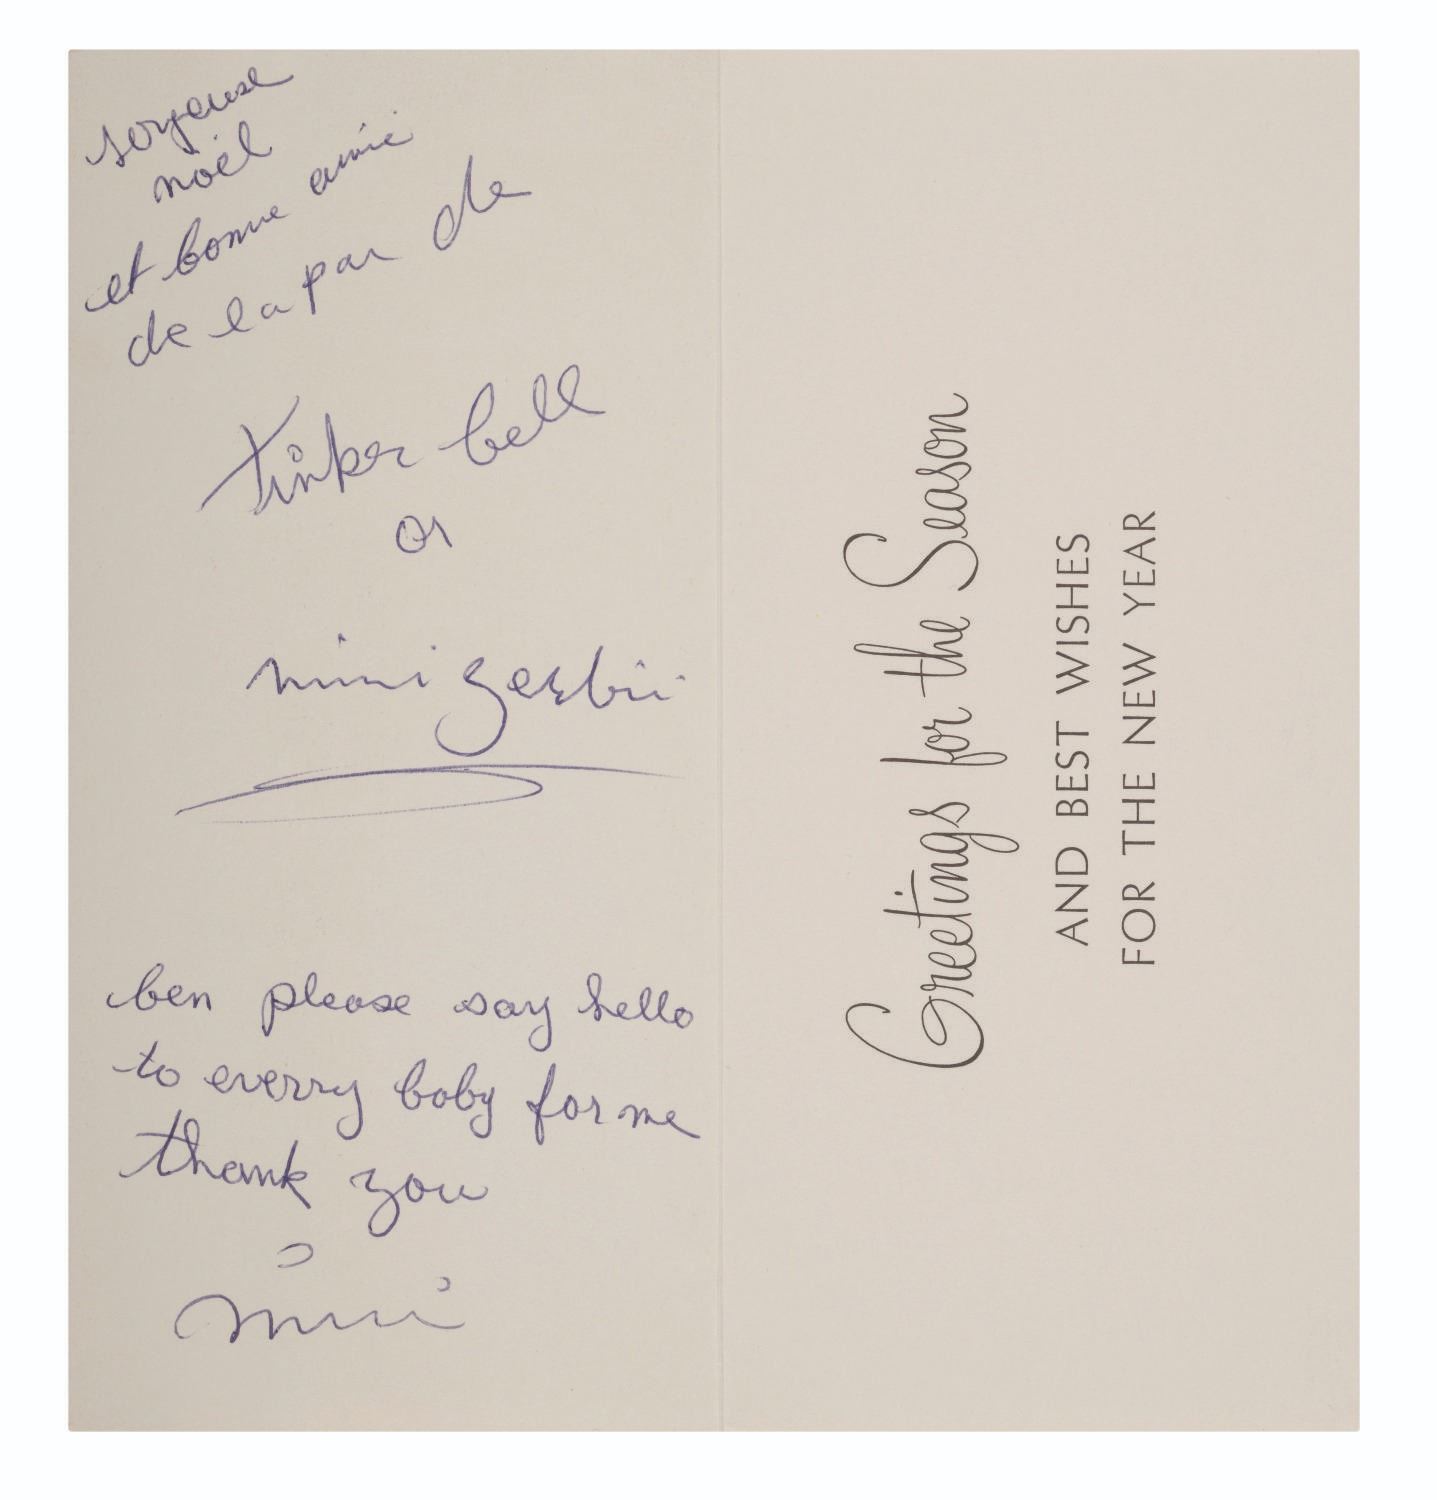 Joyeuse
noël
et bonne anné
de la par de
tinker bell
or
mimi zerbii
ben please say hello
to everry boby for me
thank you
mimi
Greetings for the Season
AND BEST WISHES
FOR THE NEW YEAR